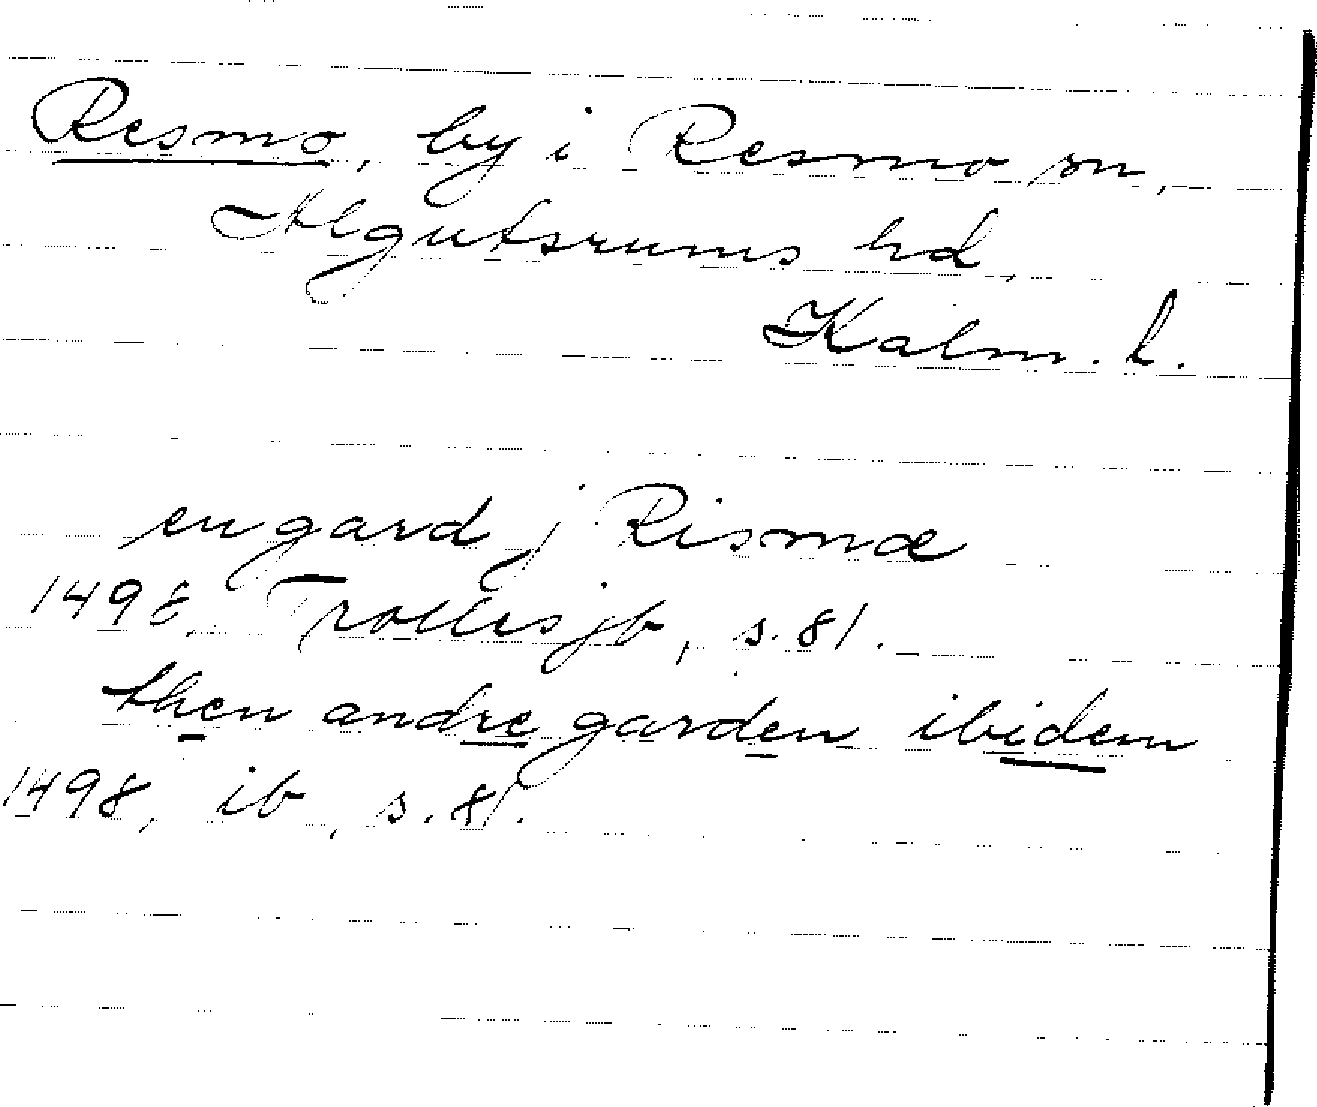 Resmo, by i Resmo sn,
Algutsrums hd,
Kalm. l.
en gard j Rismæ
1498, Trolles jb, s. 81.
then andre garden ibidem
1498, ib, s. 81.